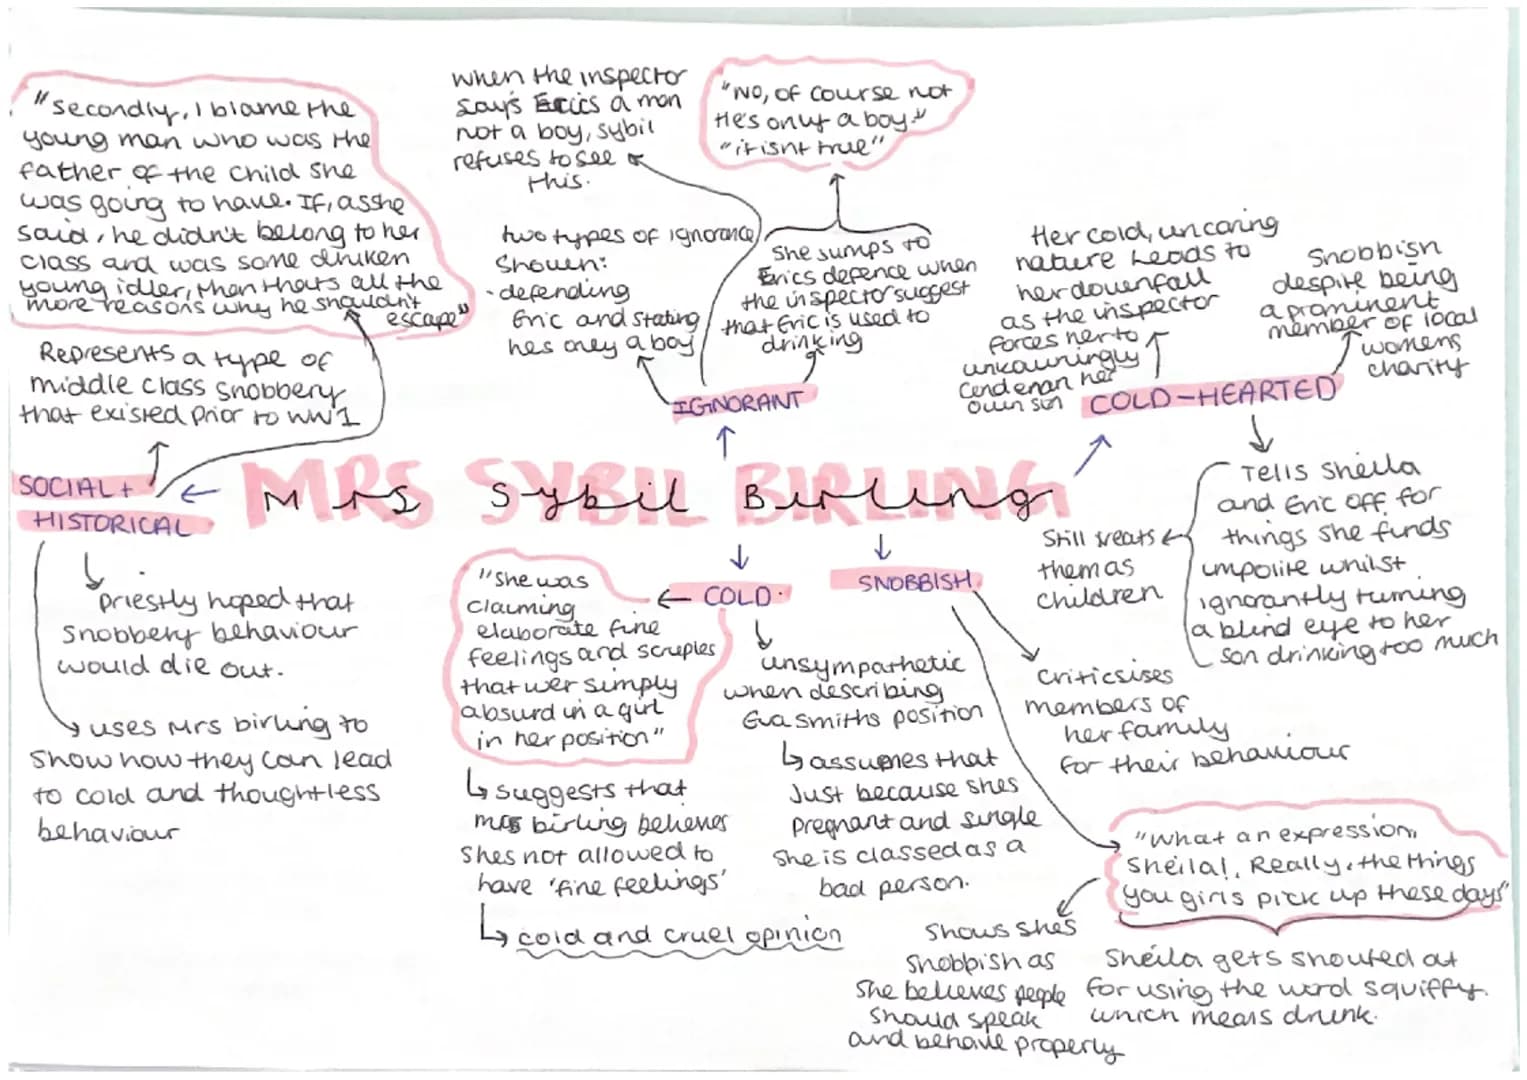 "secondly, I blame the
young man who was the
father of the child she
was going to have. If, asshe
said, he didn't belong to her
class and was some drunken
young idler, then thats all the
more reasons why he shouldn't
escape"
Represents a type of
middle class snobbery
that existed prior to WW1
SOCIAL +
HISTORICAL
priestly hoped that
snobbery behaviour
would die out.
uses Mrs birling to
show how they can lead
to cold and thoughtless
behaviour
when the inspector
says Erics a man
not a boy, sybil
refuses to see
this.
"No, of course not
He's only a boy."
"it isnt true"
two types of ignorance
shown:
- defending
Eric and stating
hes only a boy
She jumps to
Erics defence when
the inspector suggest
that Eric is used to
drinking
IGNORANT
Her cold, uncaring
nature leads to
her downfall
as the inspector
forces her to
unkowningly
condeman her
own son
Snobbish
despite being
a prominent
member of local
womens
charity
COLD-HEARTED
MRS SYBIL BIRLING
Mrs Sybil Birling
Tells Sheila
and Eric off for
things she funds
impolite whilst
ignorantly turning
a blind eye to her
son drinking too much
Still treats
them as
children
COLD.
"She was
claiming
elaborate fine
feelings and scruples
that wer simply
absurd in a girl
in her position"
suggests that
mrs birling believes
shes not allowed to
have 'fine feelings'
cold and cruel opinion
unsympathetic
when describing
Eva smiths position
assumes that
Just because shes
pregnant and single
she is classed as a
bad person.
SNOBBISH
Criticsises
members of
her family
for their behaviour
"What an expression,
Sheila!, Really, the things
you girls pick up these days"
Shows shes
snobbish as
she believes people
should speak
and behave properly
Sheila gets shouted at
for using the word squiffy.
which means drunk.